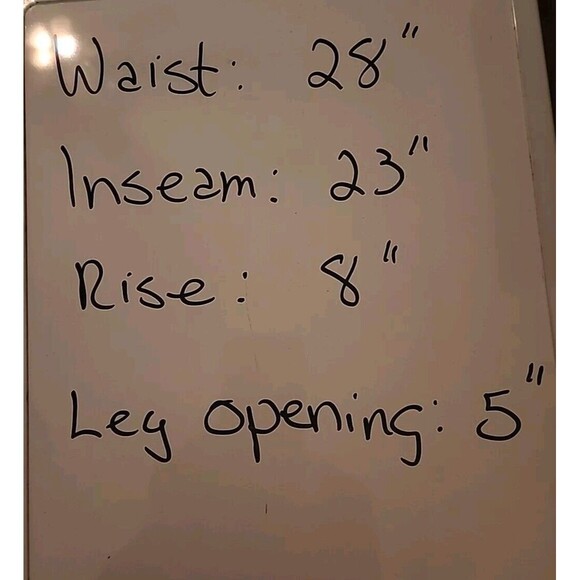 Waist: 28"
Inseam: 23"
Rise: 8"
Leg opening: 5"